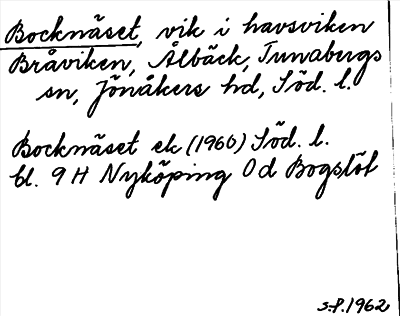 Bocknäset, vik i havsviken
Bråviken, Ålbäck, Tunabergs
sn, Jönåkers hd, Söd. l.
Bocknäset ek (1960) Söd. l.
bl. 9 H Nyköping 0d Bogslöt
s.p. 1962